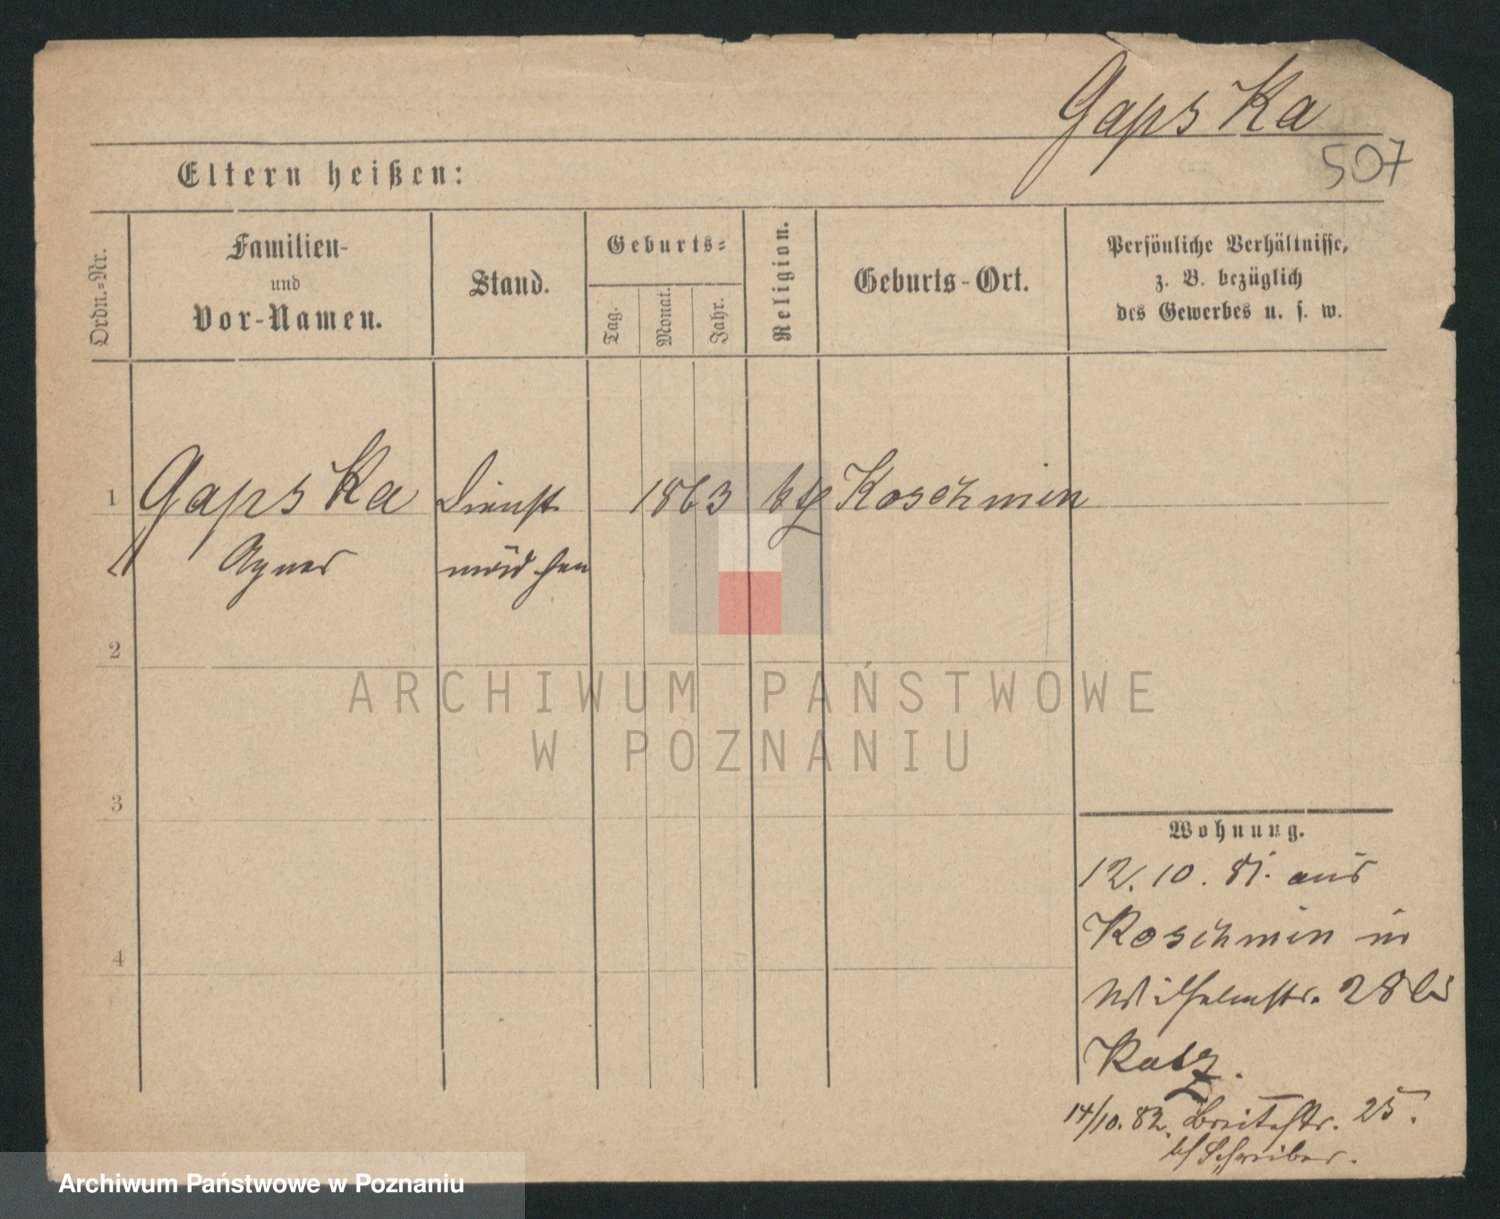 Gapska
507
Eltern heißen:
Ordn.-Nr.
Familien-
und
Vor-Namen.
Stand.
Geburts-
Tag.
Monat.
Jahr.
Religion.
Geburts-Ort.
Persönliche Verhältnisse,
z. B. bezüglich
des Gewerbes u. s. w.
1 Gapska Dienst 1863 Koschmin
Agnes mädchen
2
3
4
ARCHIWUM PAŃSTWOWE
W POZNANIU
Wohnung.
12. 10. 81. aus
Koschmin in
Wilhelmstr. 28 bei
Katz.
14/10. 82. Breitestr. 25.
b/ Schreiber.
Archiwum Państwowe w Poznaniu